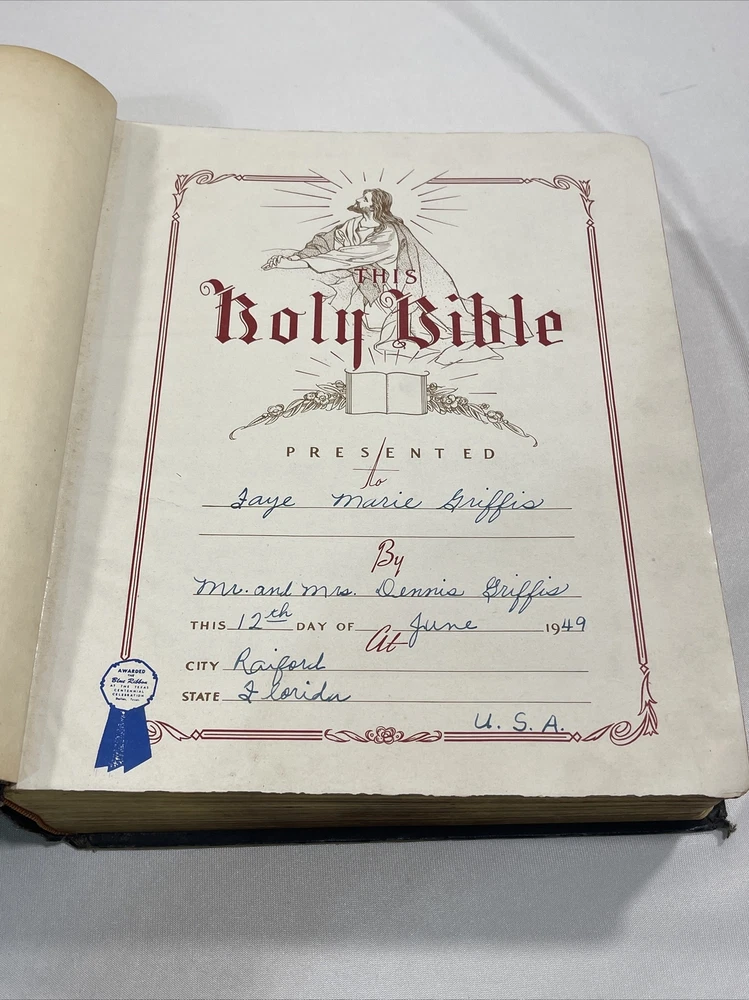 THIS
Holy Bible
PRESENTED
to
Faye Marie Griffis
By
Mr. and Mrs. Dennis Griffis
THIS 12th DAY OF June 1949
At
CITY Raiford
STATE Florida
U. S. A.
AWARDED
THE
Blue Ribbon
AT THE TEXAS
CENTENNIAL
CELEBRATION
Dallas, Texas